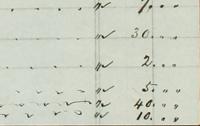 " 7. " "
" 30. " "
" 2. " "
" 5. " "
" 40. " "
" 10. " "